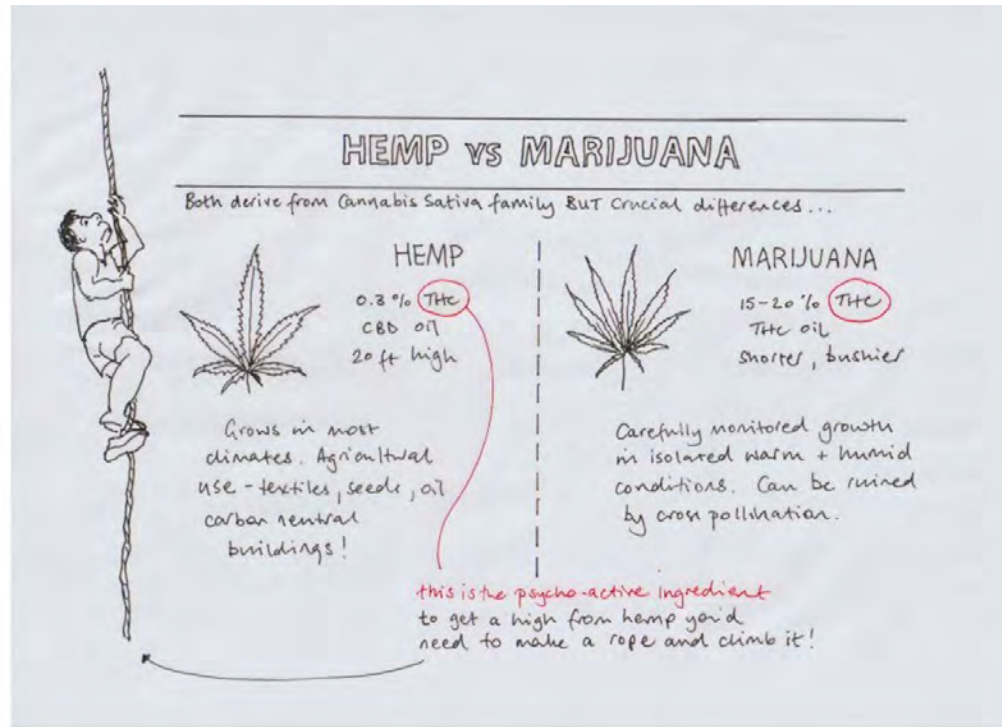 HEMP vs MARIJUANA
Both derive from Cannabis Sativa family BUT Crucial differences...
HEMP
0.3% THC
CBD oil
20 ft high
Grows in most
climates. Agricultural
use - textiles, seeds, oil
carbon neutral
buildings!
MARIJUANA
15-20% THC
THC oil
Shorter, bushier
Carefully monitored growth
in isolated warm + humid
conditions. Can be ruined
by cross pollination.
this is the psycho-active ingredient
to get a high from hemp you'd
need to make a rope and climb it!